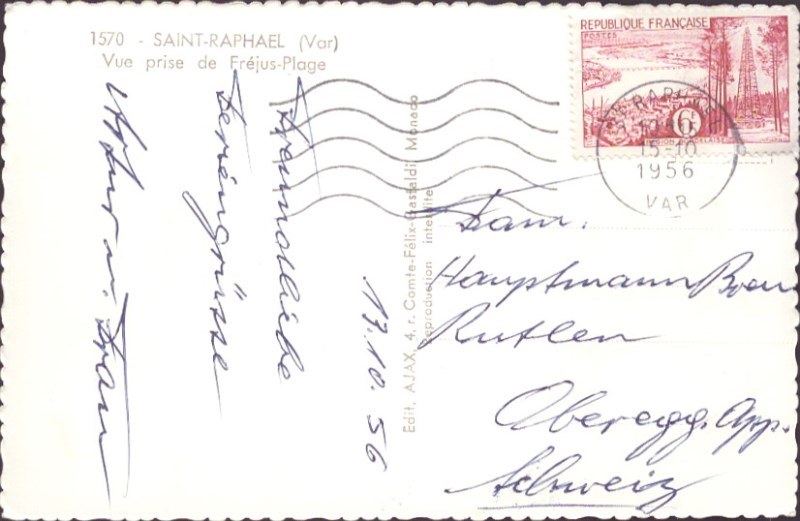 1570 - SAINT-RAPHAEL (Var)
Vue prise de Fréjus-Plage
REPUBLIQUE FRANÇAISE
POSTES
6
15-10
1956
VAR
Edit. AJAX, 4, r. Comte-Félix-Gastaldi, Monaco
reproduction interdite
17.10.56
Freundliche
Feriengrüsse
Artur u. Frau
Fam.
Hauptmann
Rutlen
Oberegg. App.
Schweiz